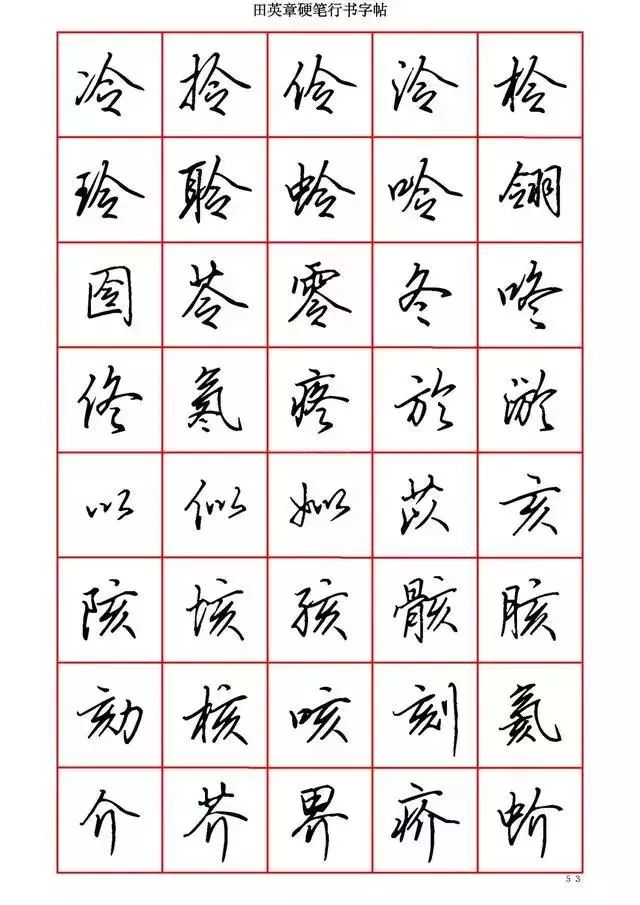 田英章硬笔行书字帖
冷 拎 伶 泠 柃
玲 聆 蛉 呤 翎
囹 苓 零 冬 咚
佟 氡 疼 於 淤
以 似 姒 苡 亥
陔 垓 孩 骸 胲
劾 核 咳 刻 氦
介 芥 界 疥 蚧
53